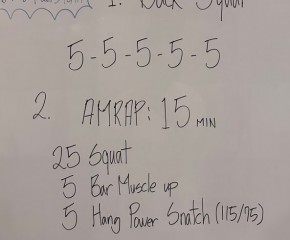 1. Back Squat
5-5-5-5-5
2. AMRAP: 15 MIN
25 Squat
5 Bar Muscle up
5 Hang Power Snatch (115/75)